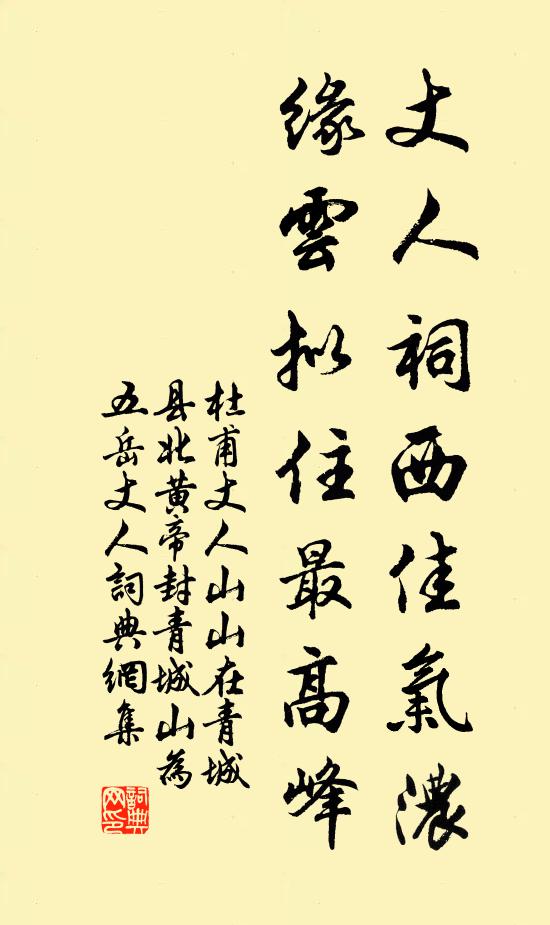 丈人祠西佳氣濃
緣雲拟住最高峰
杜甫丈人山山在青城
县北黄帝封青城山為
五岳丈人詞典網集
詞典
网印